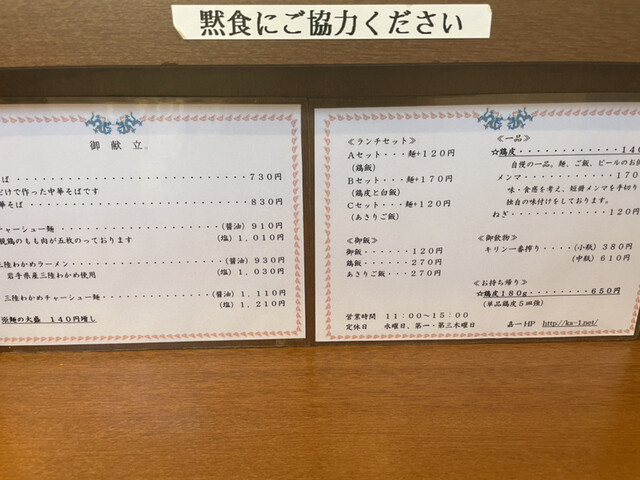 黙食にご協力ください
御献立。
ば・・・・・・・・・・・・・・・・・・・・・730円
だけで作った中華そばです
華そば・・・・・・・・・・・・・・・・・・・830円
チャーシュー麺・・・・・・・・・・・・(醤油) 910円
鶏のもも肉が五枚のっております (塩) 1,010円
三陸わかめラーメン・・・・・・・・・・(醤油) 930円
岩手県産三陸わかめ使用 (塩) 1,030円
三陸わかめチャーシュー麺・・・・・・・(醤油) 1,110円
(塩) 1,210円
※麺の大盛 140円増し
≪ランチセット≫
Aセット・・・麺+120円
(鶏飯)
Bセット・・・麺+170円
(鶏皮と白飯)
Cセット・・・麺+120円
(あさりご飯)
≪御飯≫
御飯・・・・・・120円
鶏飯・・・・・・270円
あさりご飯・・・270円
営業時間 11:00~15:00
定休日 水曜日、第一・第三木曜日
≪一品≫
☆鶏皮・・・・・・・・・・・・140
自慢の一品。麺、ご飯、ビールのお
メンマ・・・・・・・・・・・・170
味・食感を考え、短冊メンマを手切り
独自の味付けをしております。
ねぎ・・・・・・・・・・・・120円
≪御飲物≫
キリン一番搾り・・・・(小瓶) 380円
(中瓶) 610円
≪お持ち帰り≫
☆鶏皮180g・・・・・・・650円
(単品鶏皮5皿後)
嘉一HP http://ka-1.net/